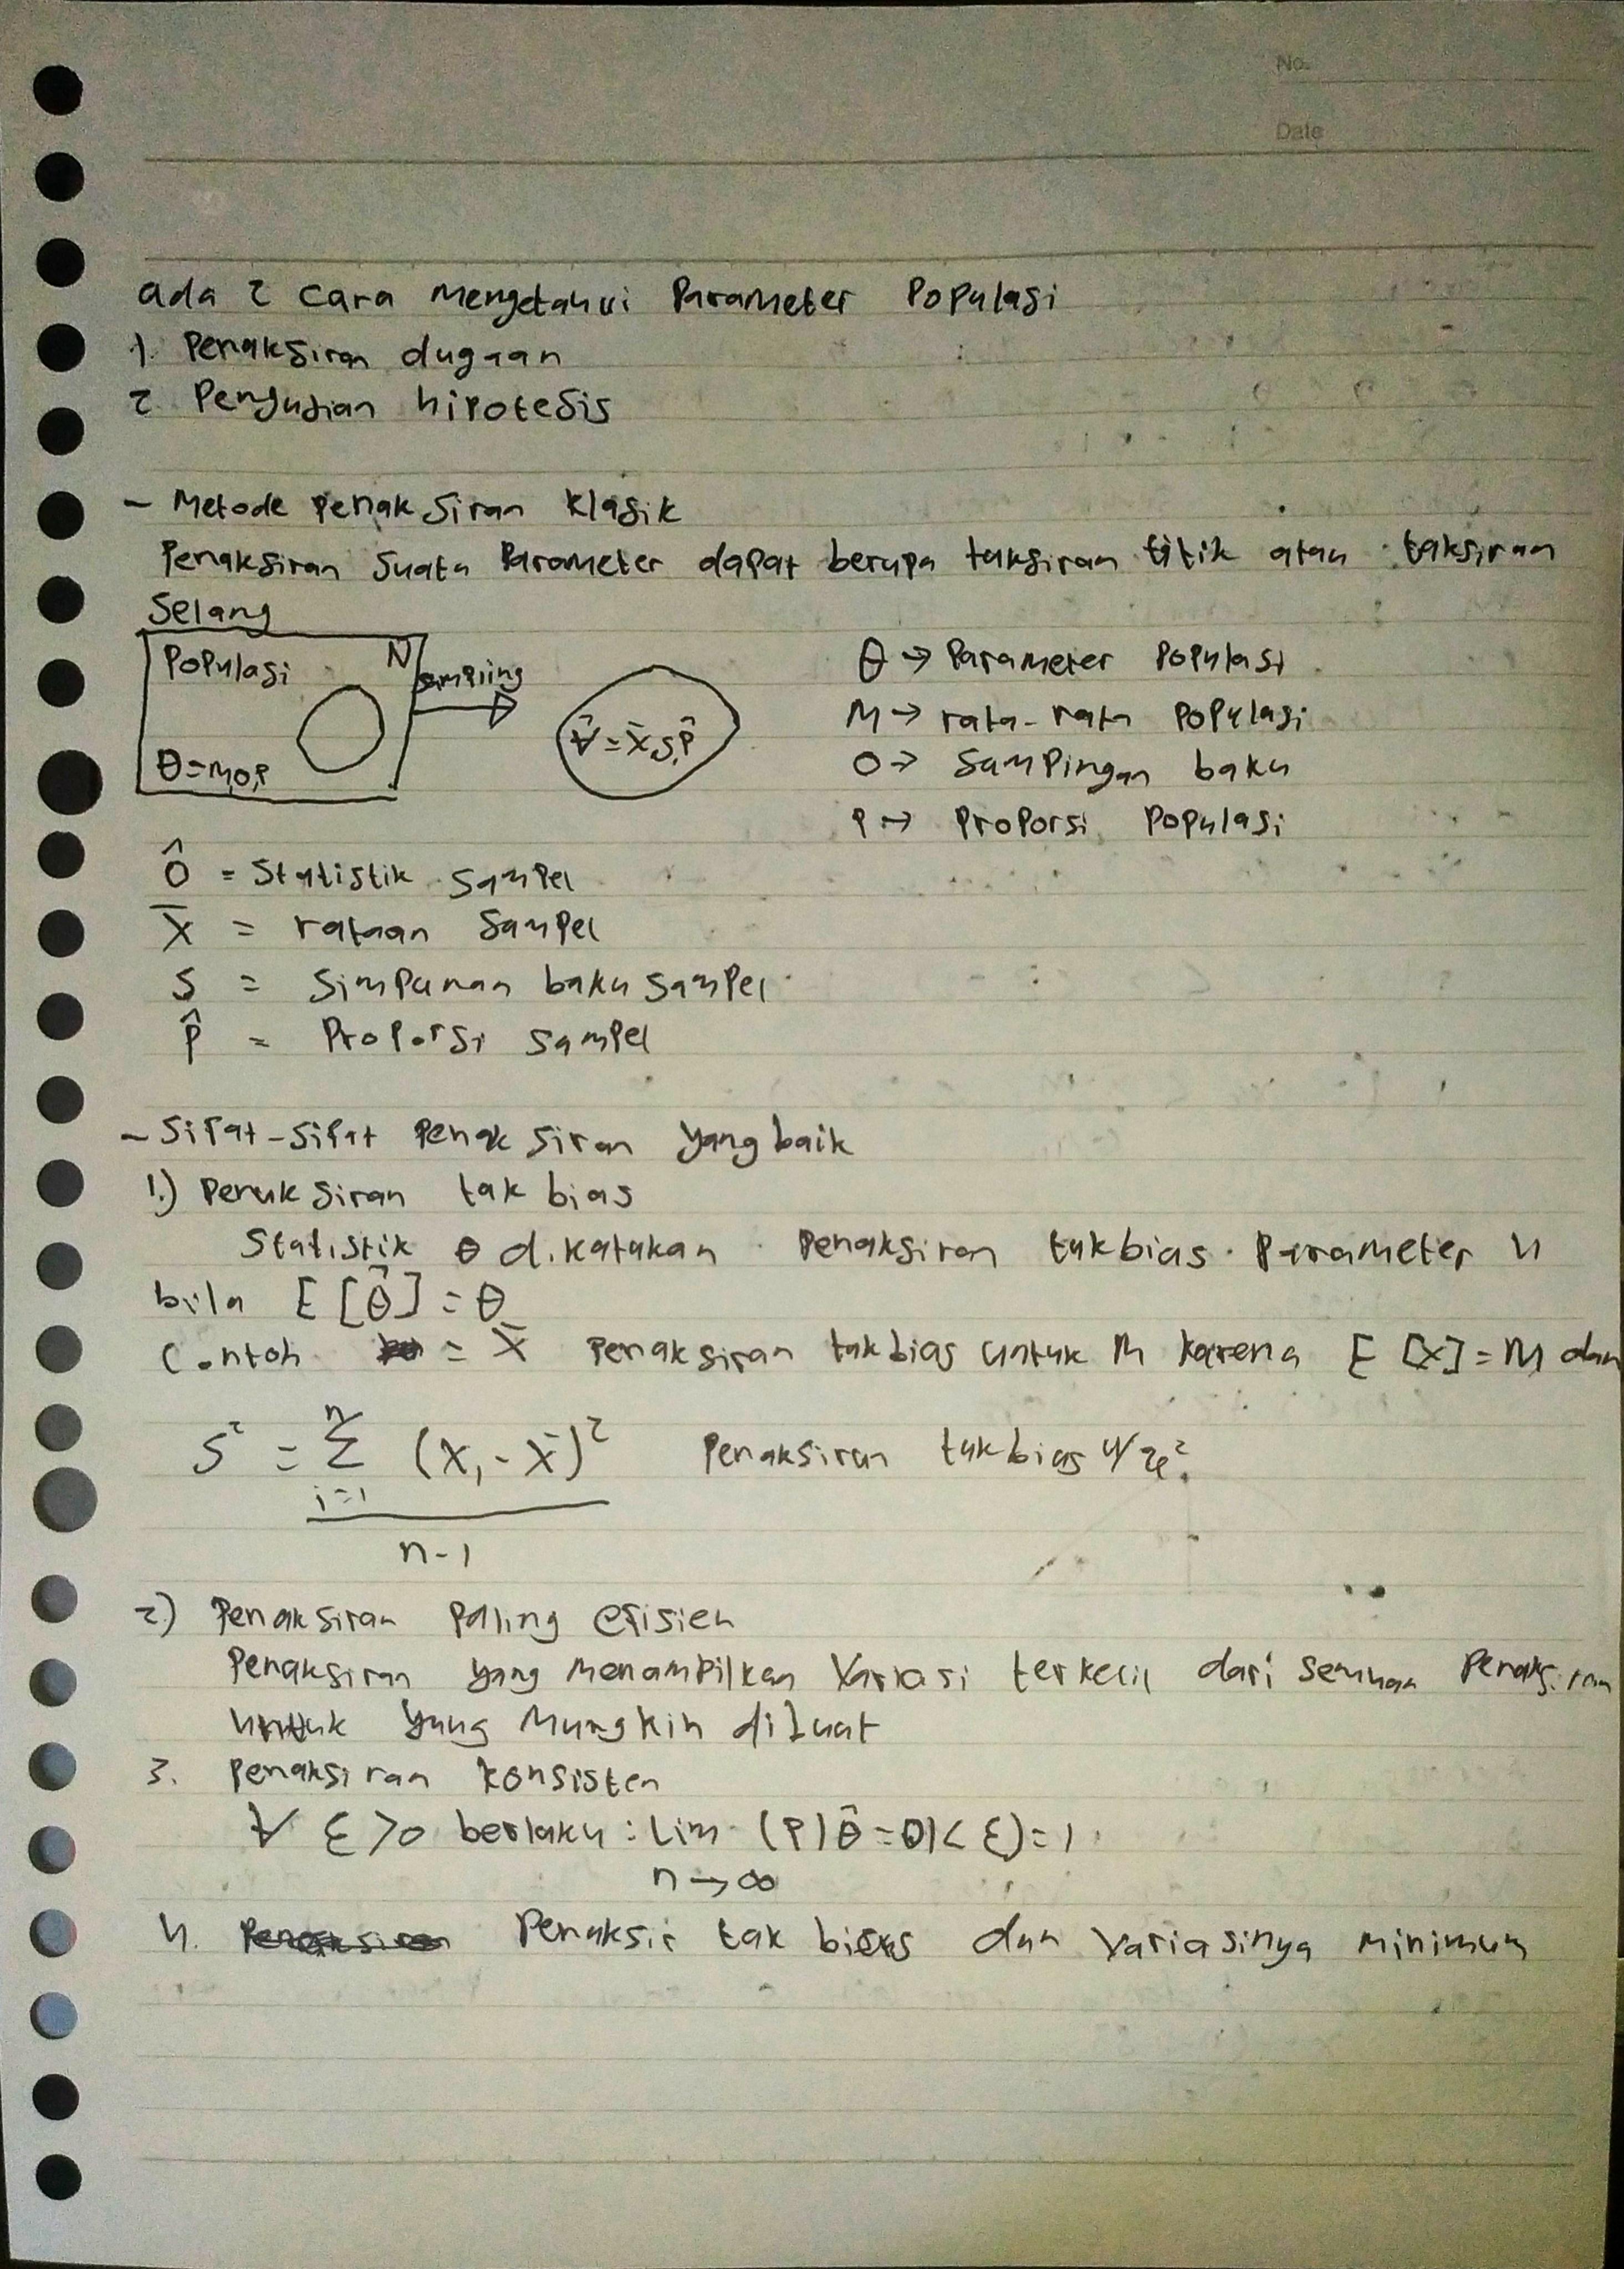 No.
Date
ada 2 cara mengetahui Parameter Populasi
1. Penaksiran dugaan
2. Pengujian hipotesis
- Metode penaksiran klasik
Penaksiran suatu Parameter dapat berupa taksiran titik atau taksiran
Selang
Populasi N
sampling
θ = M,O,P
θ̂ = x̄,s,p̂
θ → Parameter Populasi
M → rata-rata Populasi
O → Sampingan baku
P → Proporsi Populasi
Ô = Statistik Sampel
X̄ = rataan Sampel
S = Simpanan baku Sampel
P̂ = Proporsi Sampel
- Sifat-Sifat Penaksiran yang baik
1.) Penaksiran tak bias
Statistik θ dikatakan Penaksiran takbias Parameter
bila E [θ̂] = θ
Contoh = X̄ Penaksiran takbias untuk M karena E [X] = M dan
S² = Σ (x, - x̄)²
i=1 n
n-1
Penaksiran takbias u/
2) Penaksiran Paling efisien
Penaksiran yang menampilkan Variasi terkecil dari semua Penaksiran
untuk yang Mungkin dibuat
3. Penaksiran konsisten
∀ ε > 0 berlaku : Lim (P|θ̂ = θ| < ε) = 1
n → ∞
4. Penaksir tak bias dan Variasinya minimum